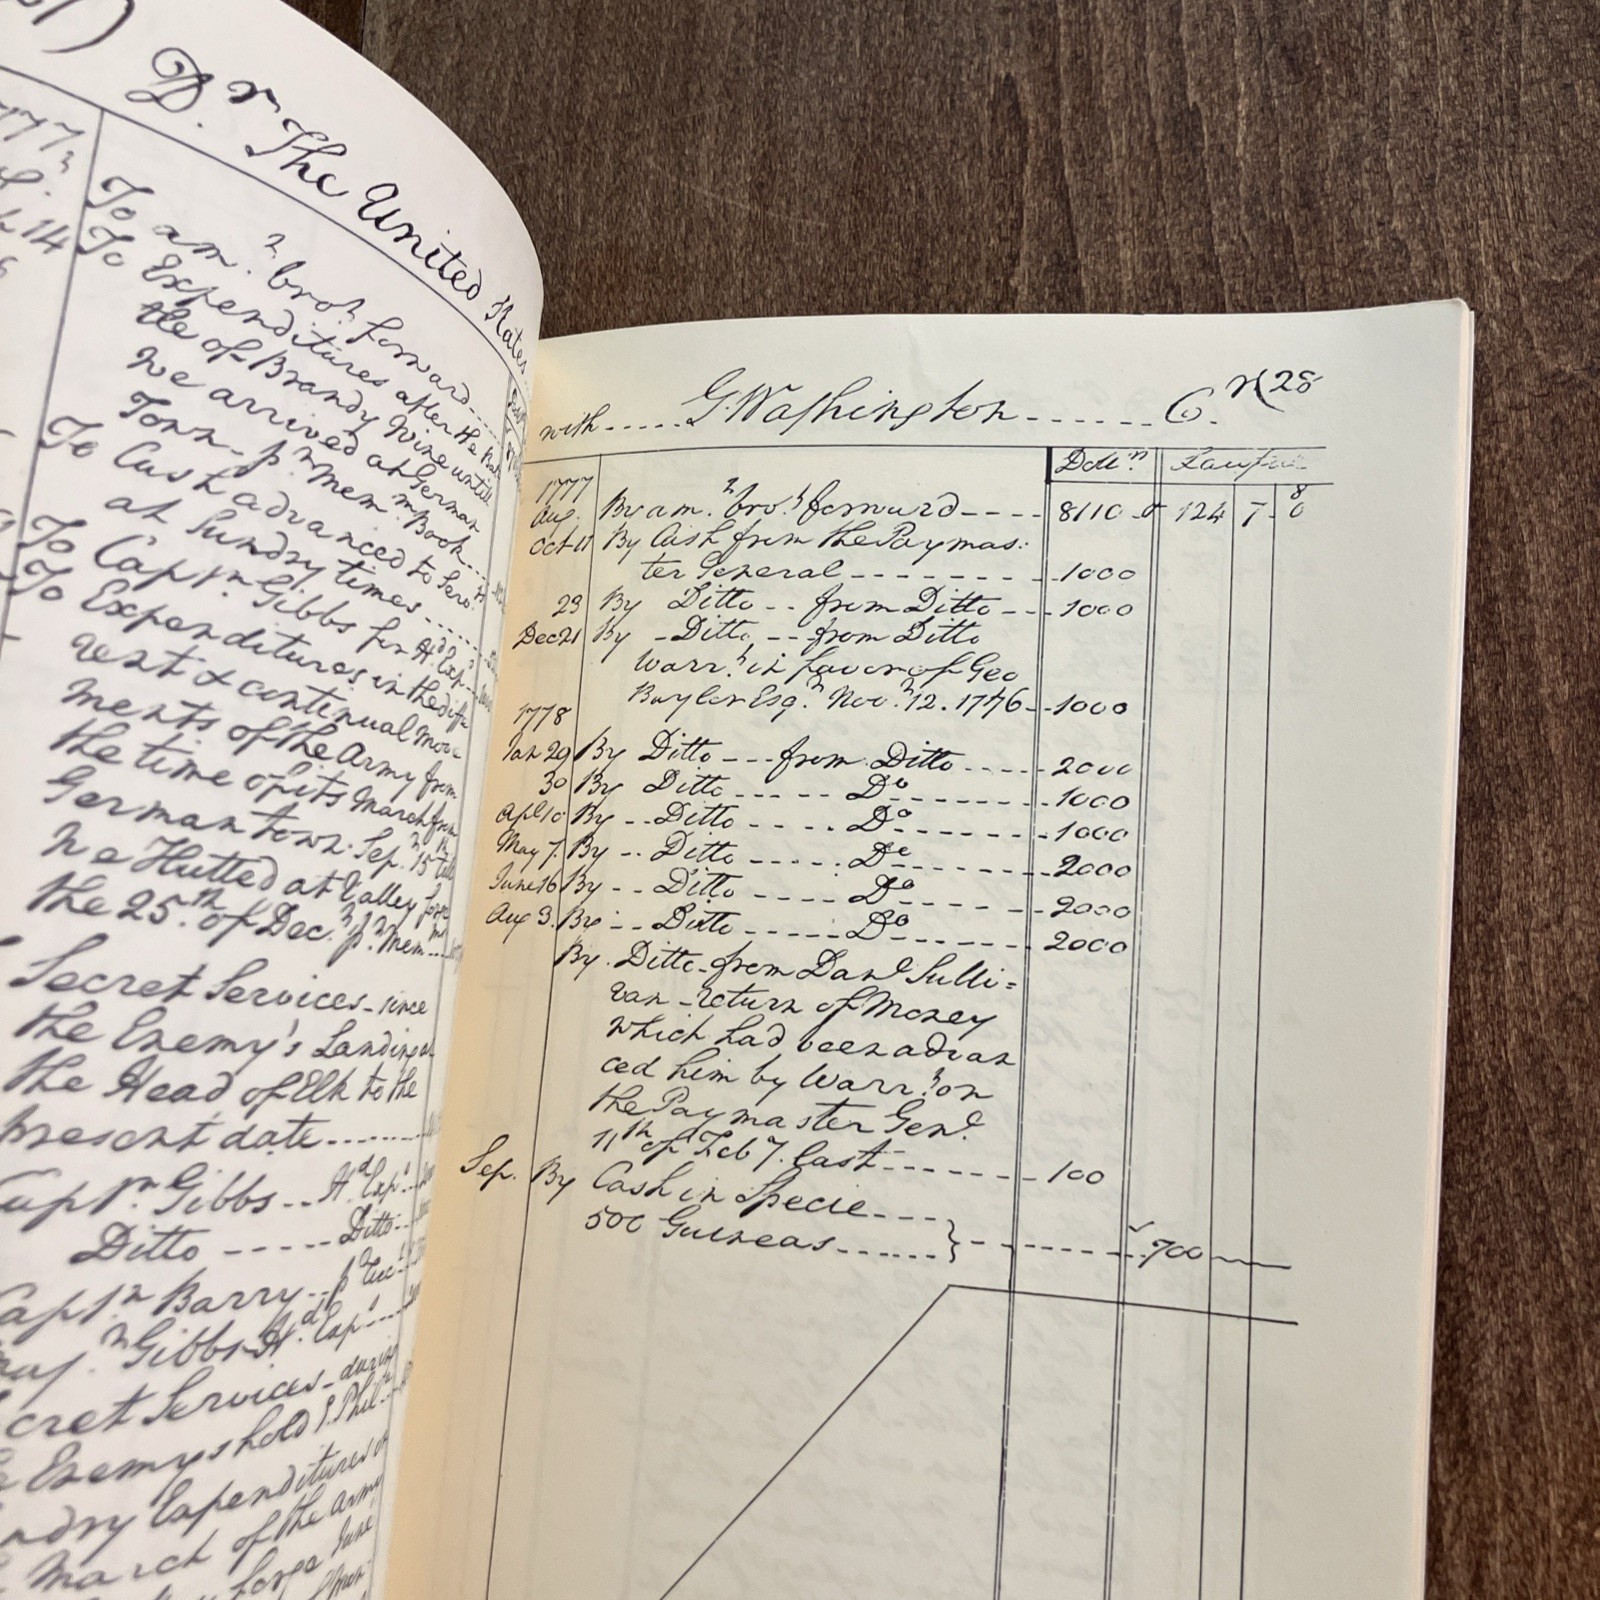 Dr The United States
1777
To am.t bro.t forward
14 To Expenditures after the Bat
tle of Brandy Wine until
we arrived at German
Town - pr Mem.m Book
To Cash advanced to Serv.ts
at Sundry times
To Cap.tn Gibbs for H.d Exp.s
To Expenditures in the diffe
rent & continual Move
ments of the Army from
the time of its March from
Germantown Sep. 15 till
we Hutted at Valley forge
the 25.th of Dec.r pr Mem.m
Secret Services - since
the Enemy's Landing at
the Head of Elk to the
present date
Capt.n Gibbs .. H.d Exp.s
Ditto ..... Ditto
Capt.n Barry
Gibbs H.d Exp.s
Secret Services - during
Enemys hold
Expenditures
March of the Army
forge June
with ..... G. Washington ...... C.r 28
Doll.rs Lawful
1777
Aug. By am.t bro.t forward ---- 8110 124 7 8
Oct 11 By Cash from the Paymas:
ter General ------- 1000
23 By Ditto -- from Ditto --- 1000
Dec 21 By - Ditto -- from Ditto
Warr.t in favor of Geo
Baylor Esq.r Nov.r 12. 1776 - 1000
1778
Jan 29 By Ditto --- from Ditto ---- 2000
30 By Ditto ----- Do ------ 1000
Apl 10 By -- Ditto ---- Do ------ 1000
May 7. By -- Ditto ----- Do ------ 2000
June 16 By -- Ditto ---- Do ------ 2000
Aug 3. By -- Ditto ----- Do ------ 2000
By Ditto - from Danl Sulli=
van - return of Money
which had been advan
ced him by Warr.t on
the Paymaster Genl
11th of Feb.y last ------ 100
Sep. By Cash in Specie ---
500 Guineas ------ } ------- 700